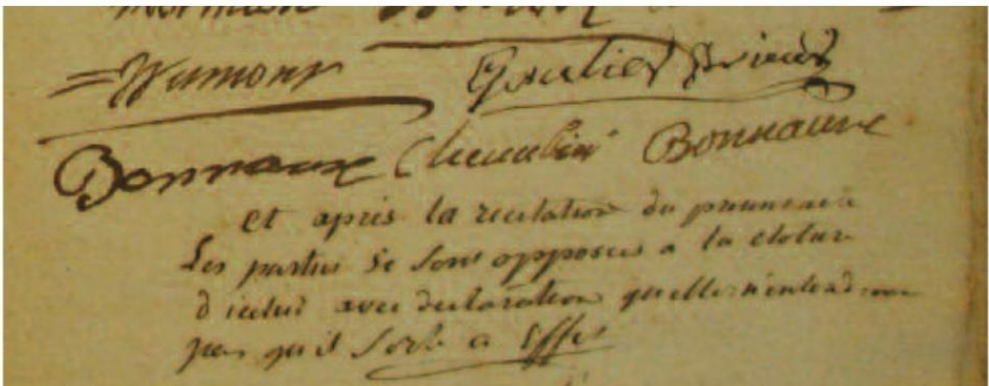 Gautier Prieur
Bonnaure Chevalier Bonnaure
et après la recitation du
Les parties se sont opposées a la cloture
d'icelui avec declaration qu'elles n'entendent
pas qu'il sorte a Effet